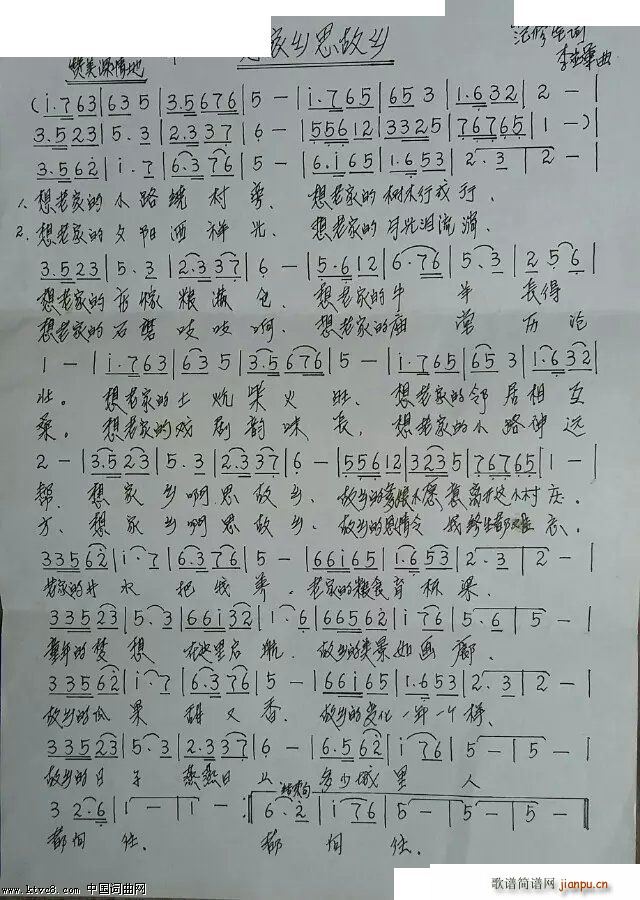 思故乡
赞美 深情地
词
李 曲
(i.763|635|3.5676|5 -|i.765|653|1.632|2 -|
3.523|5.3|2.337|6 -|55612|3325|76765|1 -)|
3.562|i.7|6.376|5 -|6.i65|1.653|2.3|2 -|
1. 想老家的小路绕村 想老家的树木行成行.
2. 想老家的夕阳洒祥光. 想老家的月光泪流淌.
3.523|5.3|2.337|6 -|5.612|6.76|5.3|2 56|
想老家的 粮满仓. 想老家的牛羊长得
想老家的石磨吱吱响. 想老家的庙堂历沧
1 -|i.763|635|3.5676|5 -|i.765|653|1.632|
壮。想老家的土炕柴火旺. 想老家的邻居相互
桑。想老家的戏剧韵味长, 想老家的小路伸远
2 -|3.523|5.3|2.337|6 -|55612|3235|76765|1 -|
帮. 想家乡啊思故乡. 故乡的 不愿意离开这小村庄.
方. 想家乡啊思故乡. 故乡的恩情令我终生都难忘.
33562|i.7|6.376|5 -|66i65|1.653|2.3|2 -|
老家的井水把我养. 老家的粮食育栋梁.
33523|5.3|66i32|1.6|66562|i 76|5.6|5 -|
童年的梦想在这里启航. 故乡的美景如画廊.
33562|i.7|6.376|5 -|66i65|1.653|2.3|2 -|
故乡的瓜果甜又香. 故乡的变化一年一个样.
33523|5.3|2.337|6 -|6.562|i 76|5 -|5 -|
故乡的日子 多少城里人
结束句
3 2.6|1 -|1 -:|6.2|i 76|5 -|5 -|5 -||
都向往. 都向往.
www.ktvc8.com 中国词曲网
歌谱简谱网
jianpu.cn